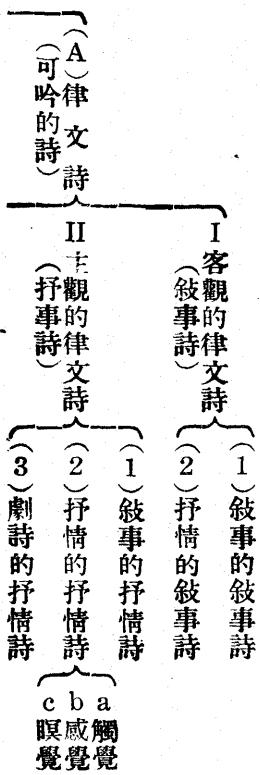 (A)律文詩
(可吟的詩)
I客觀的律文詩
(敍事詩)
(1)敍事的敍事詩
(2)抒情的敍事詩
II主觀的律文詩
(抒事詩)
(1)敍事的抒情詩
(2)抒情的抒情詩
a觸覺
b感覺
c瞑覺
(3)劇詩的抒情詩